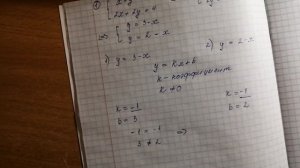 2x + 2y = 4
y = 3 - x
<=> y = 2 - x
1) y = 3 - x
2) y = 2 - x
y = kx + b
k - коэффициент
k ≠ 0
k = -1
b = 3
k = -1
b = 2
-1 = -1
3 ≠ 2 =>